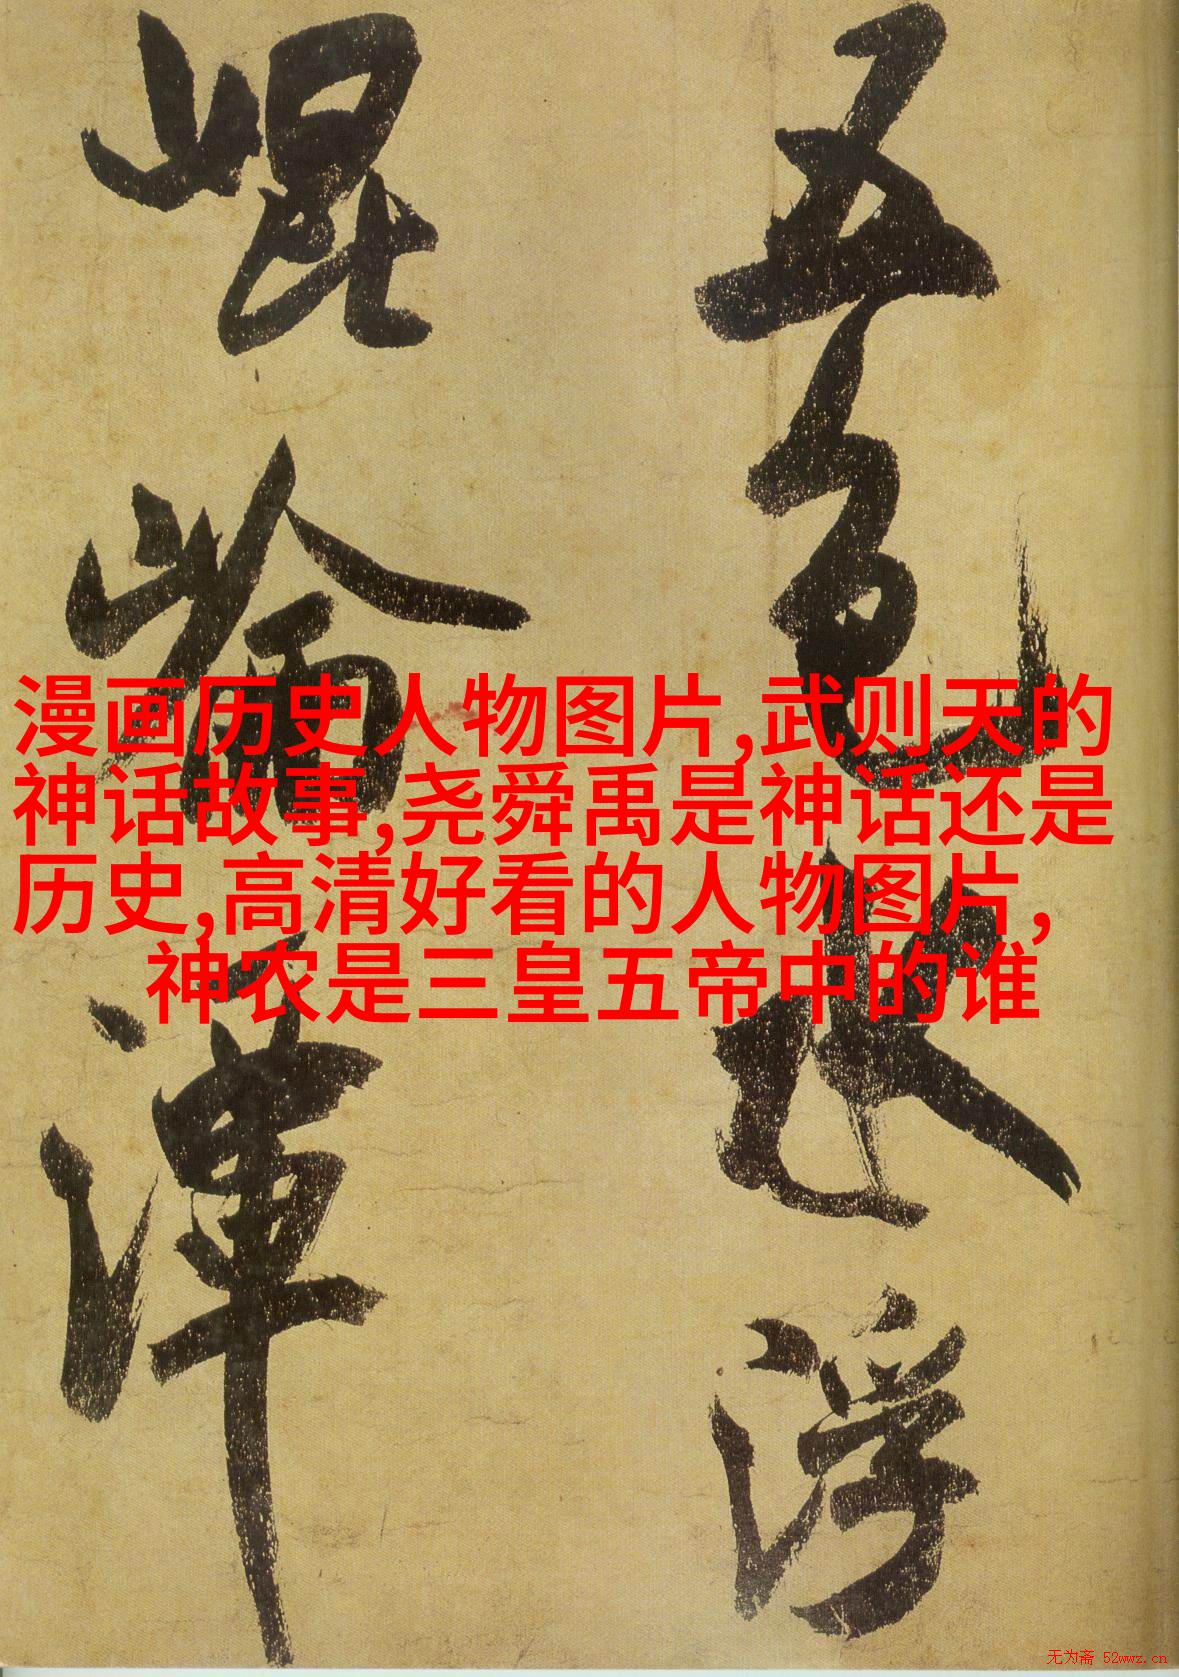 五色水浮
崐崘潭
漫画历史人物图片,武则天的
神话故事,尧舜禹是神话还是
历史,高清好看的人物图片,
神农是三皇五帝中的谁
无为斋 52wwz.cn